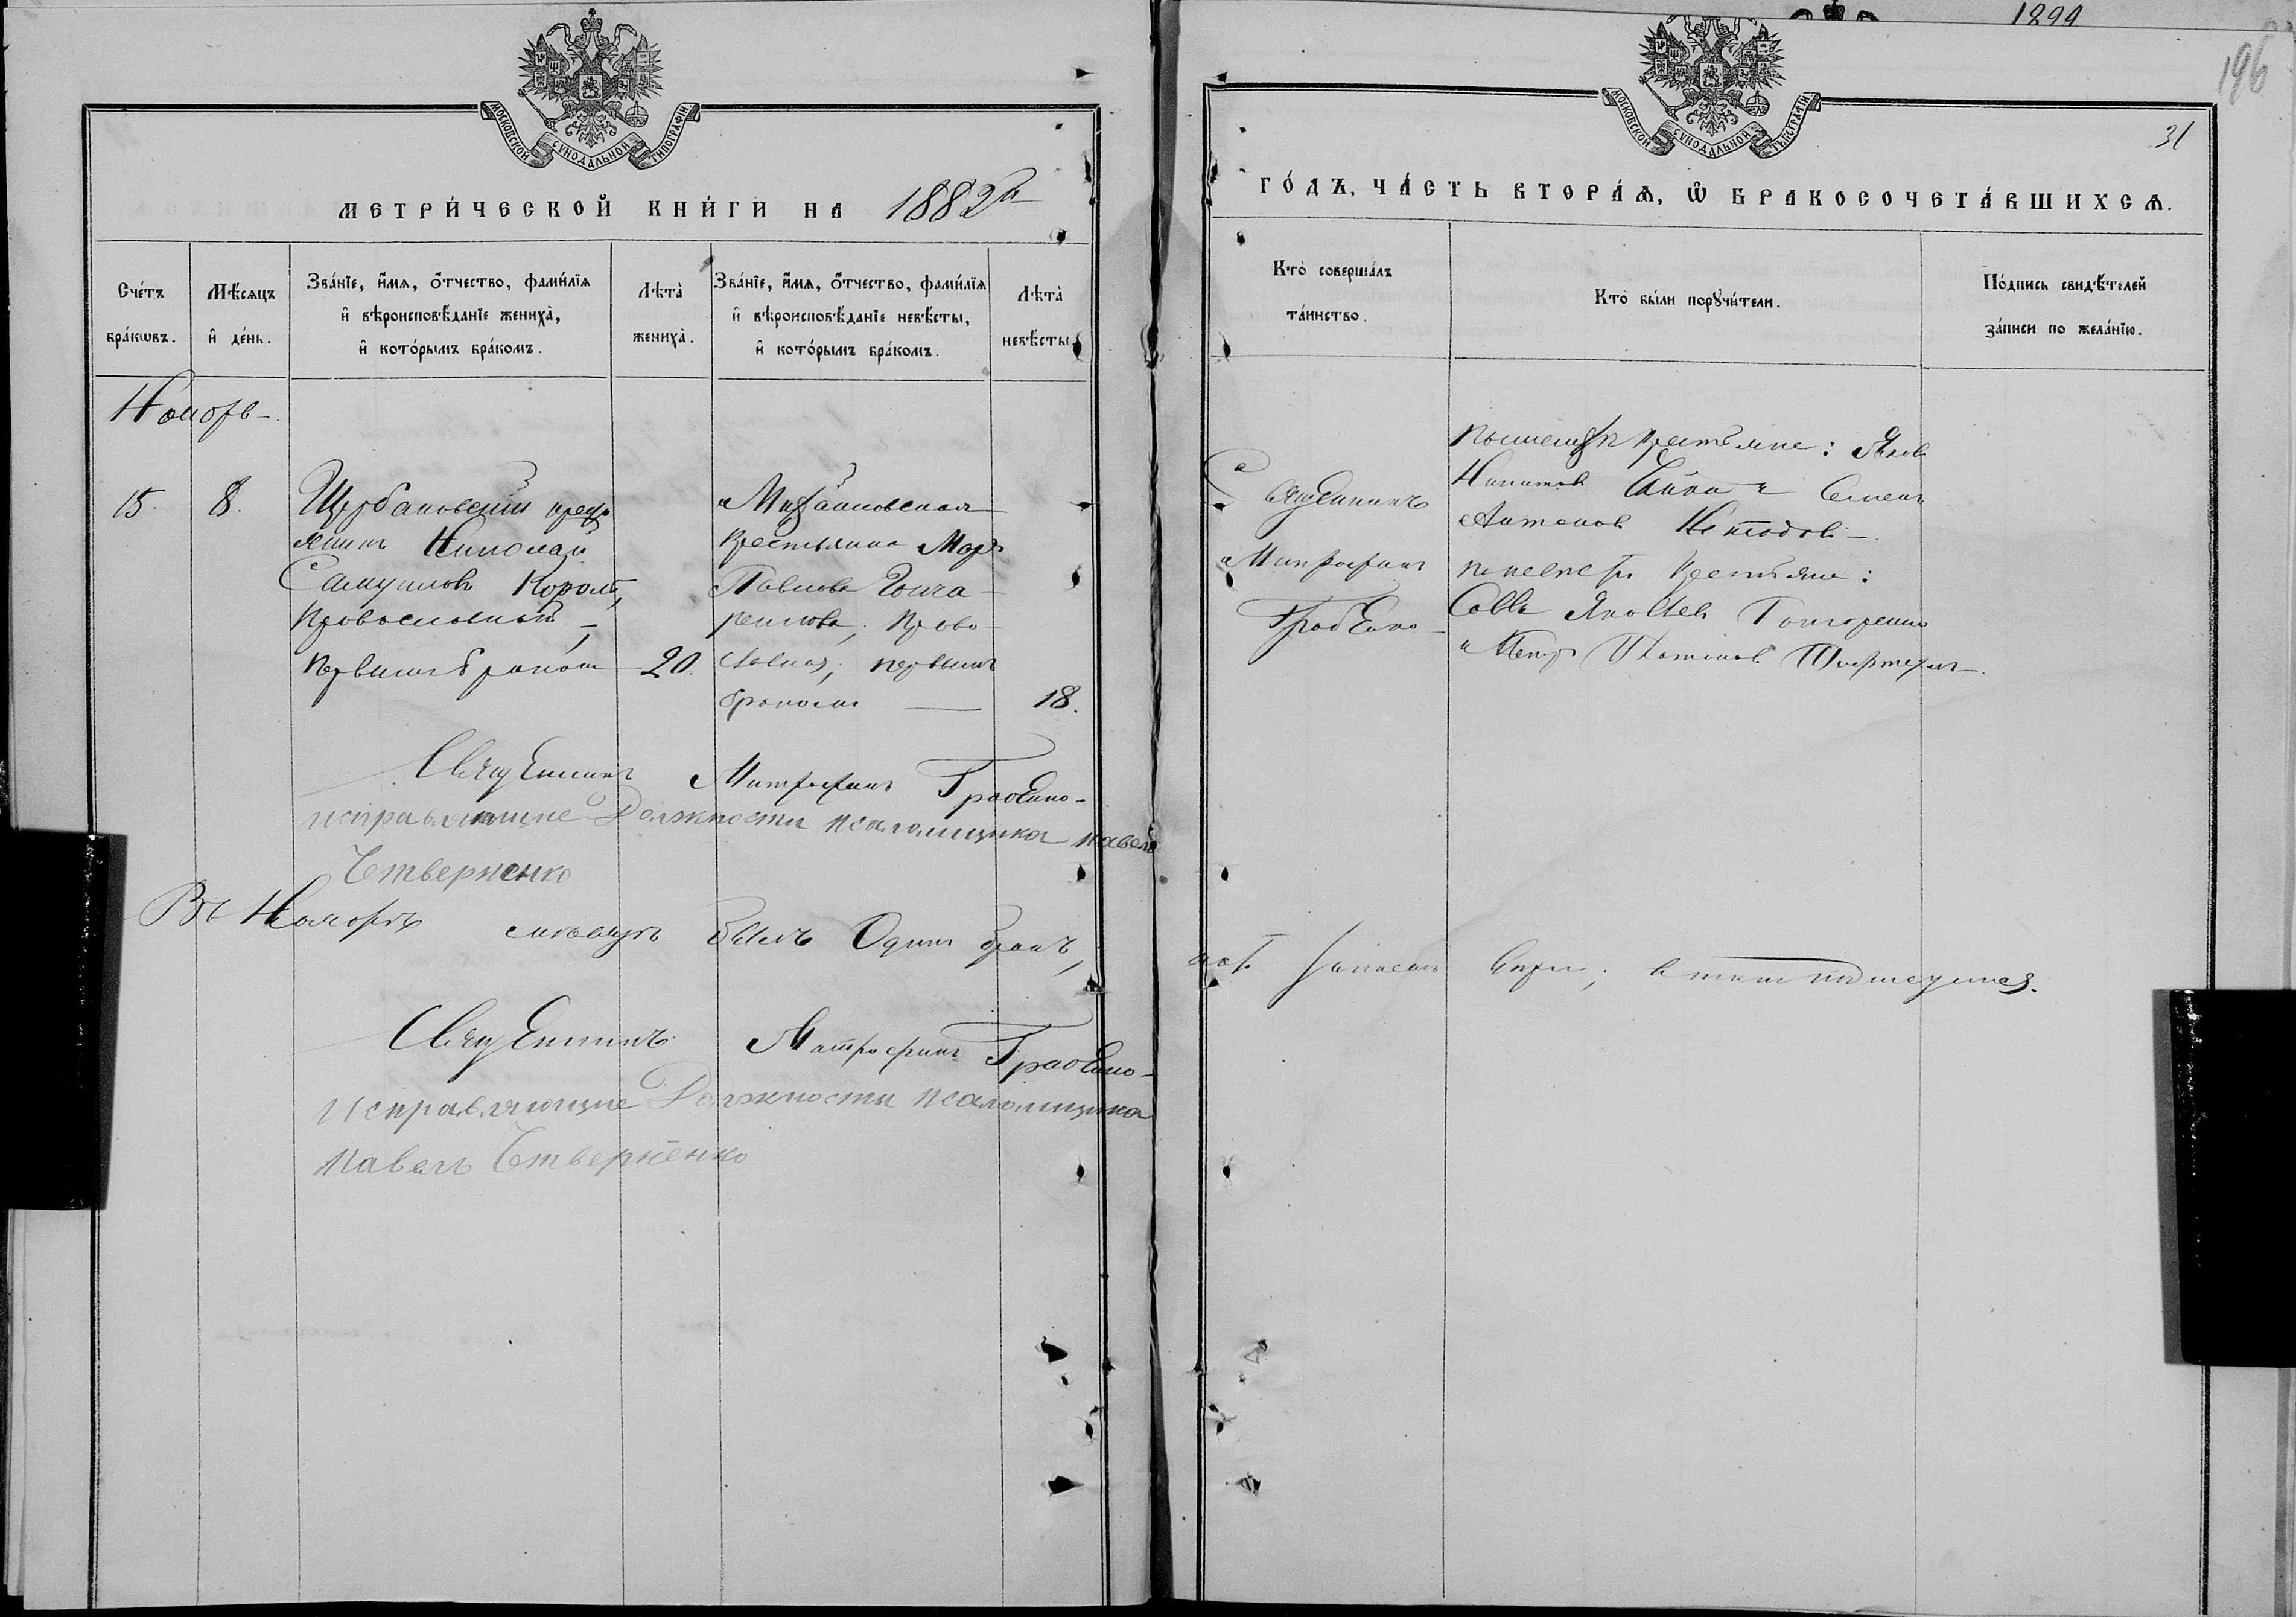 1899
196
31
МОСКОВСКОЙ СѴНОДАЛЬНОЙ ТИПОГРАФІИ
МОСКОВСКОЙ СѴНОДАЛЬНОЙ ТИПОГРАФІИ
МЕТРИ́ЧЕСКОЙ КНИ́ГИ НА 1882й
ГО́ДЪ, ЧА́СТЬ ВТОРА́Ѧ, Ѿ БРАКОСОЧЕТА́ВШИХСѦ.
Сче́тъ бра́кѡвъ.
Мѣ́сяцъ и҆ де́нь.
Зва́нїе, и҆́мѧ, ѻ҆́тчество, фами́лїѧ и҆ вѣроисповѣ́данїе жениха̀, и҆ кото́рымъ бра́комъ.
Лѣта̀ жениха̀.
Зва́нїе, и҆́мѧ, ѻ҆́тчество, фами́лїѧ и҆ вѣроисповѣ́данїе невѣ́сты, и҆ кото́рымъ бра́комъ.
Лѣта̀ невѣ́сты.
Кто̀ соверша́лъ та́инство.
Кто̀ бы́ли порꙋчи́тели.
По́дпись свидѣ́телей за́писи по жела́нїю.
Ноябрь
15. 8.
Щербановскій крестьянинъ Николай
Самуиловъ Король,
Православный,
первымъ бракомъ 20.
Михайловская
крестьянка
Павлова Гонча-
ренкова, Право-
славная, первымъ
бракомъ 18.
Священникъ
Митрофанъ
Грабенко
по женихѣ крестьяне: Яковъ
Никитовъ и Семенъ
Антоновъ
по невѣстѣ крестьяне:
Савва Яковлевъ Гончаренко
и Петръ
Священникъ Митрофанъ Грабенко
исправляющие Должности псаломщика Павелъ
Четверненко
Въ Ноябрѣ мѣсяцѣ былъ Одинъ бракъ,
записанъ
Священникъ Митрофанъ Грабенко
Исправляющие Должности псаломщика
Павелъ Четверненко